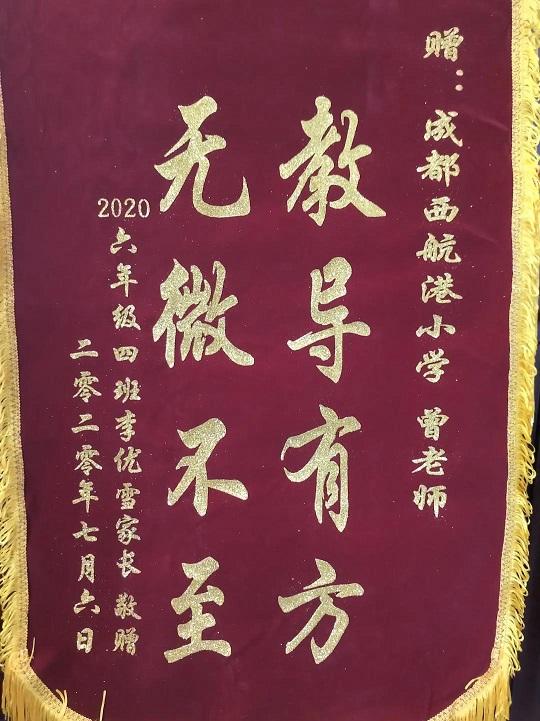 赠：成都西航港小学 曾老师
教导有方
无微不至
2020六年级四班李优雪家长 敬赠
二零二零年七月六日